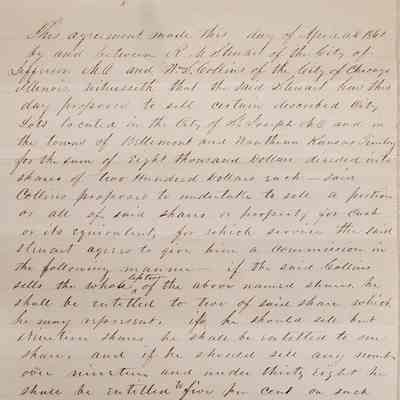 This agreement made this day of April AD 1860
by and between R. M. Stewart of the City of
Jefferson Mo and Wm S. Collins of the City of Chicago
Illinois witnesseth that the said Stewart has this
day proposed to sell certain described City
Lots located in the City of St Joseph Mo and in
the towns of Bellemont and Wauthena Kansas Territory
for the sum of Eight Thousand Dollars divided into
shares of two Hundred Dollars each — said
Collins proposes to undertake to sell a portion
or all of said shares or property for Cash
or its equivalent, for which service the said
Stewart agrees to give him a Commission in
the following manner — if the said Collins
sells the whole of the above named shares he
shall be entitled to two of said share which
he may represent. if he should sell but
Nineteen shares he shall be entitled to one
share, and if he should sell any number
over nineteen and under thirty eight he
shall be entitled to five per cent on such